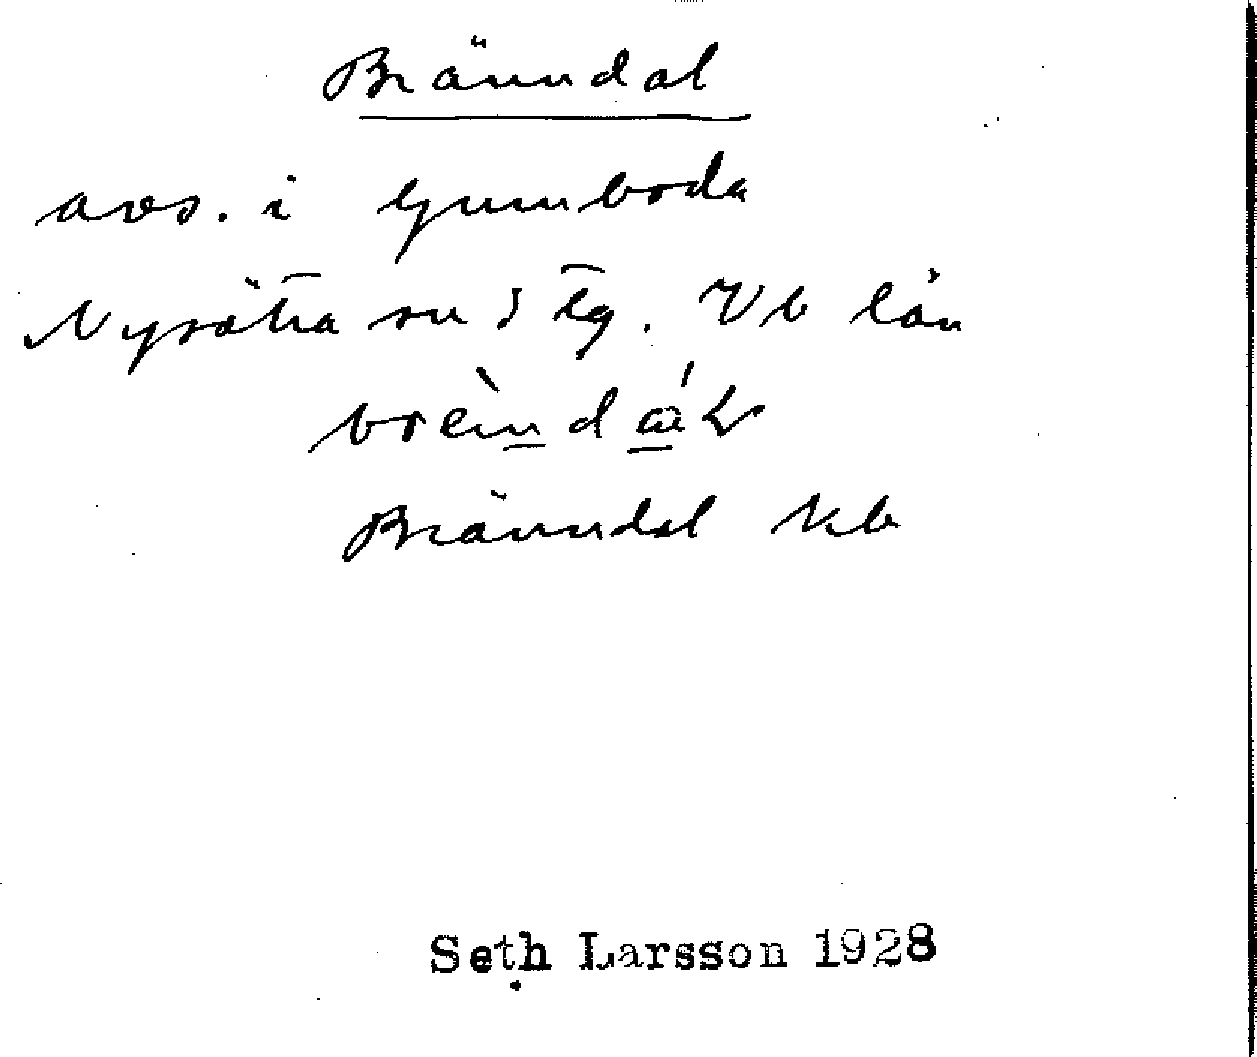 Bränndal
avs. i Gumboda
Nysätra sn Vb län
Bränndal kb
Seth Larsson 1928